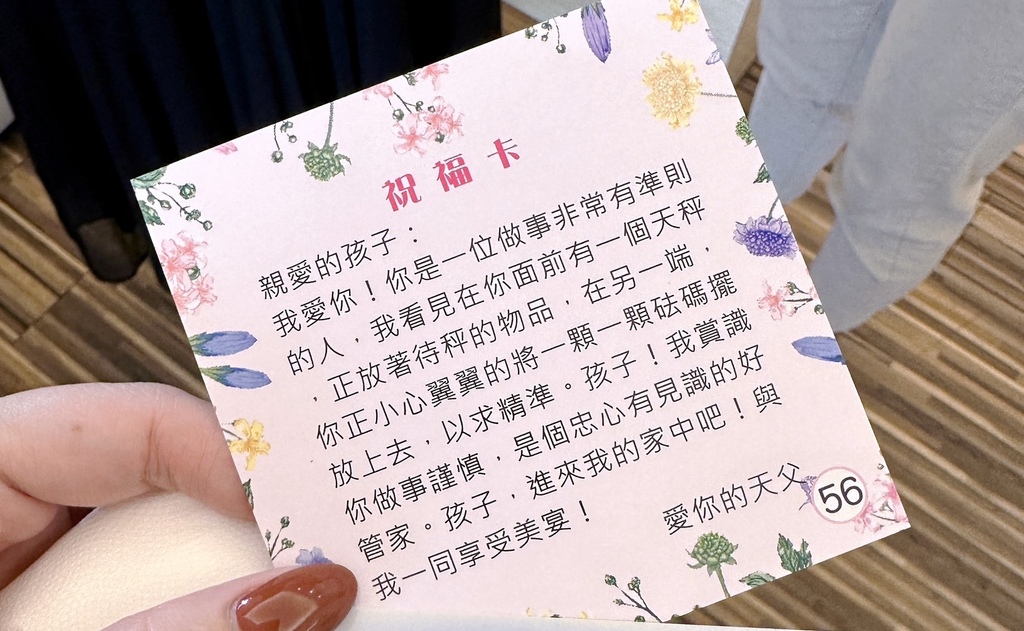 祝福卡
親愛的孩子：
我愛你！你是一位做事非常有準則
的人，我看見在你面前有一個天秤
，正放著待秤的物品，在另一端，
你正小心翼翼的將一顆一顆砝碼擺
放上去，以求精準。孩子！我賞識
你做事謹慎，是個忠心有見識的好
管家。孩子，進來我的家中吧！與
我一同享受美宴！
愛你的天父
56